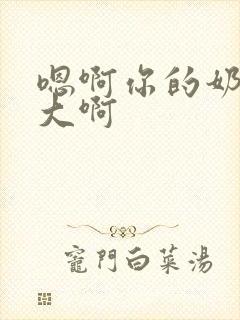 嗯啊你的奶
大啊
竈門白菜湯